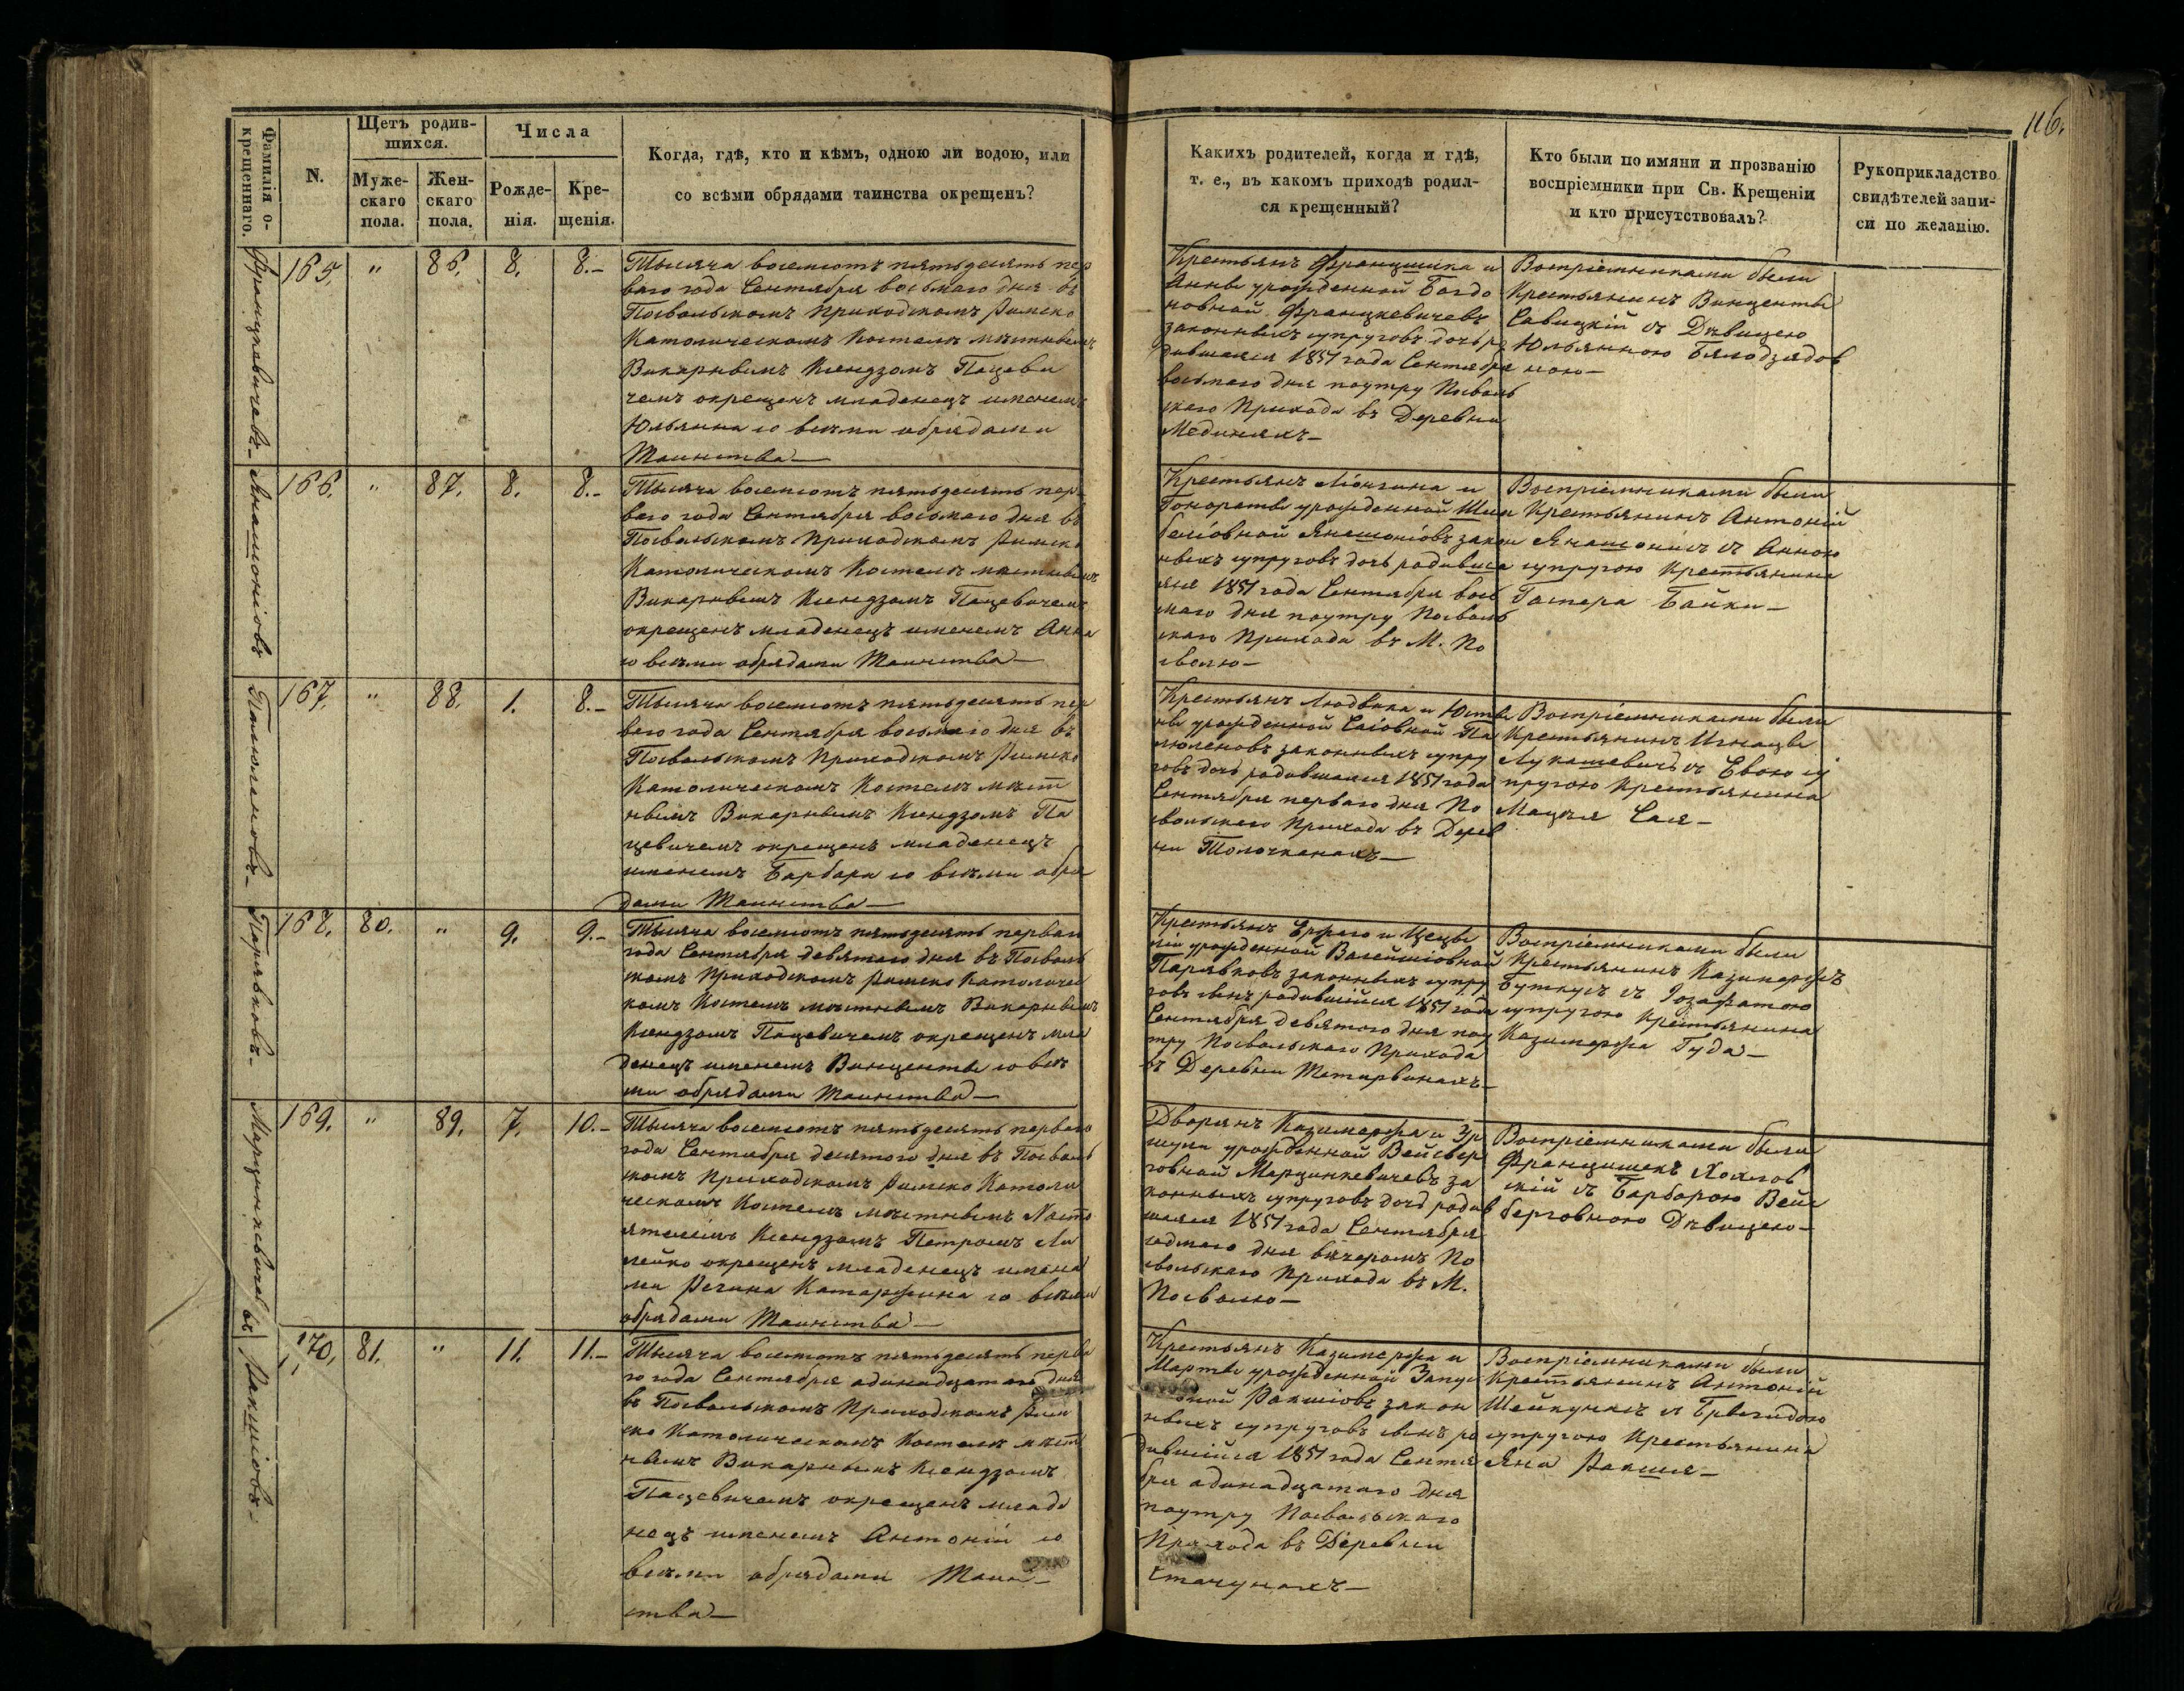 116.
Фамилія о-
крещеннаго.
N.
Щетъ родив-
шихся.
Муже-
скаго
пола.
Жен-
скаго
пола.
Числа
Рожде-
нія.
Кре-
щенія.
Когда, гдѣ, кто и кѣмъ, одною ли водою, или
со всѣми обрядами таинства окрещенъ?
Какихъ родителей, когда и гдѣ,
т. е., въ какомъ приходѣ родил-
ся крещенный?
Кто были по имяни и прозванію
воспріемники при Св. Крещеніи
и кто присутствовалъ?
Рукоприкладство
свидѣтелей запи-
си по желанію.
Францкевичевъ
165. " 86. 8. 8.
Тысяча восемсотъ пятьдесять пер
ваго года Сентября восьмаго дня въ
Посвольскомъ Приходскомъ Римско
Католическомъ Костелѣ мѣстнымъ
Викарнымъ Ксендзомъ Пацеви
чемъ окрещенъ младенецъ именемъ
Юльянна со всѣми обрядами
Таинства
Крестьянъ Францишка и
Анны урожденной Богдо
новной Францкевичевъ
законныхъ супруговъ дочь ро
дившаяся 1851 года Сентября
восьмаго дня поутру Посволь
скаго Прихода въ Деревни
Мединяхъ
Воспріемниками были
Крестьянинъ Винценты
Савицкій съ Дѣвицею
Юльянною Бялодзядов
ною
Янашоніовъ
166. " 87. 8. 8.
Тысяча восемсотъ пятьдесять пер
ваго года Сентября восьмаго дня въ
Посвольскомъ Приходскомъ Римско
Католическомъ Костелѣ мѣстнымъ
Викарнымъ Ксендзомъ Пацевичемъ
окрещенъ младенецъ именемъ Анна
со всѣми обрядами Таинства
Крестьянъ Лонгина и
Гонораты урожденной
Янашоніовъ закон
ныхъ супруговъ дочь родивша
яся 1851 года Сентября вось
маго дня поутру Посволь
скаго Прихода въ М. По
сволю
Воспріемниками были
Крестьянинъ Антоній
Янашонисъ съ Анною
супругою Крестьянина
Гаспера Байки
Палюленовъ
167. " 88. 1. 8.
Тысяча восемсотъ пятьдесять пер
ваго года Сентября восьмаго дня въ
Посвольскомъ Приходскомъ Римско
Католическомъ Костелѣ мѣст
нымъ Викарнымъ Ксендзомъ Па
цевичемъ окрещенъ младенецъ
именемъ Барбара со всѣми обря
дами Таинства
Крестьянъ Людвика и Юсты
ны урожденной Саіовной Па
люленовъ законныхъ супру
говъ дочь родившаяся 1851 года
Сентября перваго дня По
свольскаго Прихода въ Дерев
ни Толочканахъ
Воспріемниками были
Крестьянинъ Игнацы
Лукашевичъ съ Евою су
пругою Крестьянина
Мацѣя Сая
Парявковъ
168. 80. " 9. 9.
Тысяча восемсотъ пятьдесять перваго
года Сентября девятаго дня въ Посволь
скомъ Приходскомъ Римско Католичес
комъ Костелѣ мѣстнымъ Викарнымъ
Ксендзомъ Пацевичемъ окрещенъ мла
денецъ именемъ Винценты со всѣ
ми обрядами Таинства
Крестьянъ и Цецы
ліи урожденной Валейшіовной
Парявковъ законныхъ супру
говъ сынъ родившійся 1851 года
Сентября девятаго дня поу
тру Посвольскаго Прихода
въ Деревни Тетирвинахъ
Воспріемниками были
Крестьянинъ Казимержъ
Буткусъ съ Іозафатою
супругою Крестьянина
Казимержа Гуда
Марцинкевичевъ
169. " 89. 7. 10.
Тысяча восемсотъ пятьдесять перваго
года Сентября десятаго дня въ Посволь
скомъ Приходскомъ Римско Католи
ческомъ Костелѣ мѣстнымъ Насто
ятелемъ Ксендзомъ Петромъ Ли
пейко окрещенъ младенецъ имена
ми Регина Катаржина со всѣми
обрядами Таинства
Дворянъ Казимержа и
урожденной Вейсбер
говной Марцинкевичевъ за
конныхъ супруговъ дочь родив
шаяся 1851 года Сентября
седмаго дня вечеромъ По
свольскаго Прихода въ М.
Посволю
Воспріемниками были
Францишекъ
съ Барбарою Вейс
берговною Дѣвицею
Ракшіовъ
170. 81. " 11. 11.
Тысяча восемсотъ пятьдесять перва
го года Сентября адинадцатаго дня
въ Посвольскомъ Приходскомъ Рим
ско Католическомъ Костелѣ мѣст
нымъ Викарнымъ Ксендзомъ
Пацевичемъ окрещенъ младе
нецъ именемъ Антоній со
всѣми обрядами Таин
ства
Крестьянъ Казимержа и
Марты урожденной
Ракшіовъ закон
ныхъ супруговъ сынъ ро
дившійся 1851 года Сентя
бря адинадцатаго дня
поутру Посвольскаго
Прихода въ Деревни
Стачунахъ
Воспріемниками были
Крестьянинъ Антоній
Шейкунасъ съ Брыгидою
супругою Крестьянина
Яна Ракшя